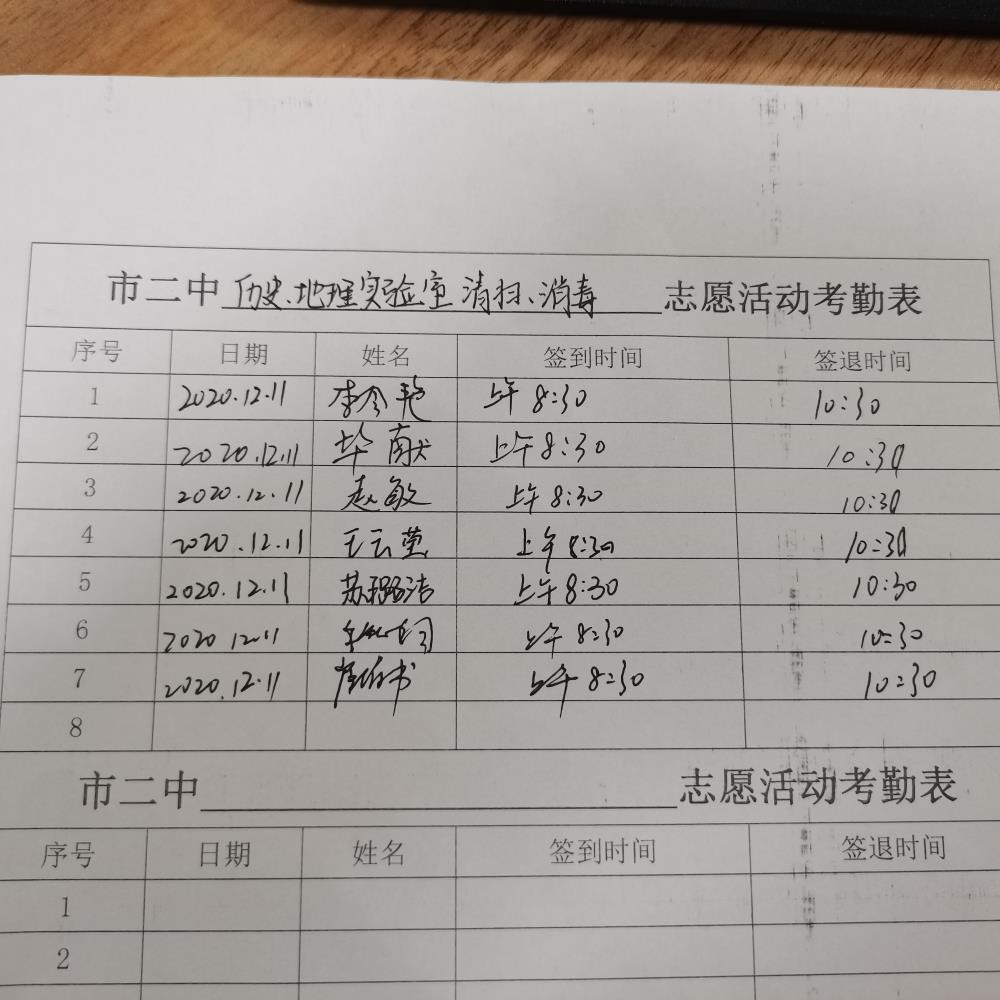 市二中 历史、地理实验室清扫、消毒 志愿活动考勤表
序号 日期 姓名 签到时间 签退时间
1 2020.12.11 李冬艳 上午 8:30 10:30
2 2020.12.11 毕献 上午 8:30 10:30
3 2020.12.11 赵敏 上午 8:30 10:30
4 2020.12.11 王云莹 上午 8:30 10:30
5 2020.12.11 苏璐洁 上午 8:30 10:30
6 2020.12.11 上午 8:30 10:30
7 2020.12.11 上午 8:30 10:30
8
市二中 志愿活动考勤表
序号 日期 姓名 签到时间 签退时间
1
2